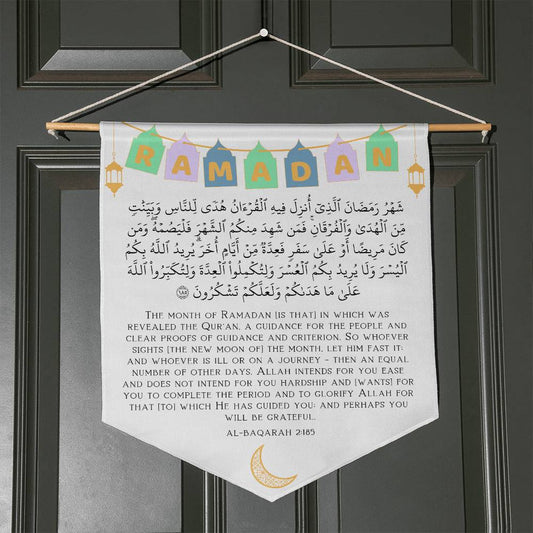 RAMADAN
شَهْرُ رَمَضَانَ ٱلَّذِىٓ أُنزِلَ فِيهِ ٱلْقُرْءَانُ هُدًى لِّلنَّاسِ وَبَيِّنَٰتٍ
مِّنَ ٱلْهُدَىٰ وَٱلْفُرْقَانِ ۚ فَمَن شَهِدَ مِنكُمُ ٱلشَّهْرَ فَلْيَصُمْهُ ۖ وَمَن
كَانَ مَرِيضًا أَوْ عَلَىٰ سَفَرٍ فَعِدَّةٌ مِّنْ أَيَّامٍ أُخَرَ ۗ يُرِيدُ ٱللَّهُ بِكُمُ
ٱلْيُسْرَ وَلَا يُرِيدُ بِكُمُ ٱلْعُسْرَ وَلِتُكْمِلُوا۟ ٱلْعِدَّةَ وَلِتُكَبِّرُوا۟ ٱللَّهَ
عَلَىٰ مَا هَدَىٰكُمْ وَلَعَلَّكُمْ تَشْكُرُونَ ١٨٥
THE MONTH OF RAMADAN [IS THAT] IN WHICH WAS
REVEALED THE QUR'AN, A GUIDANCE FOR THE PEOPLE AND
CLEAR PROOFS OF GUIDANCE AND CRITERION. SO WHOEVER
SIGHTS [THE NEW MOON OF] THE MONTH, LET HIM FAST IT;
AND WHOEVER IS ILL OR ON A JOURNEY - THEN AN EQUAL
NUMBER OF OTHER DAYS. ALLAH INTENDS FOR YOU EASE
AND DOES NOT INTEND FOR YOU HARDSHIP AND [WANTS] FOR
YOU TO COMPLETE THE PERIOD AND TO GLORIFY ALLAH FOR
THAT [TO] WHICH HE HAS GUIDED YOU; AND PERHAPS YOU
WILL BE GRATEFUL.
AL-BAQARAH 2:185